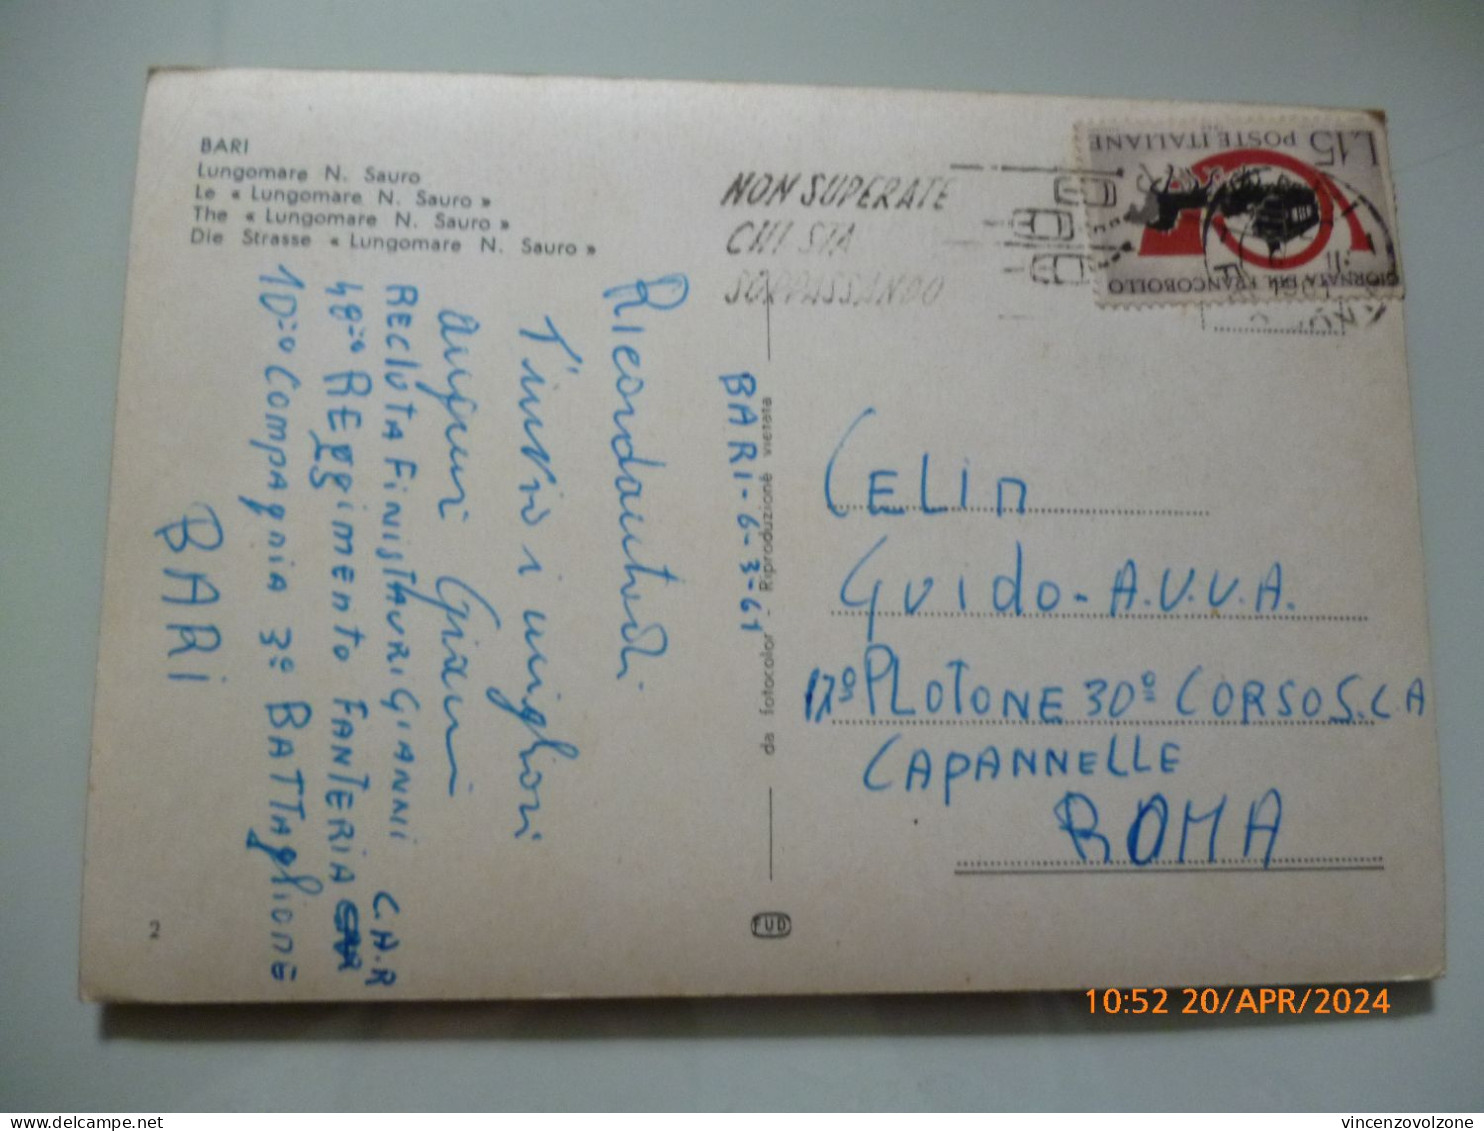 BARI
Lungomare N. Sauro
Le « Lungomare N. Sauro »
The « Lungomare N. Sauro »
Die Strasse « Lungomare N. Sauro »
NON SUPERATE
CHI STA
SORPASSANDO
L.15 POSTE ITALIANE
GIORNATA DEL FRANCOBOLLO
BARI-6-3-61
Ricordandoti
T'invio i migliori
auguri Gianni
RECLUTA FINISTAURI GIANNI C.A.R
48º REggimento FANTERIA
10º Compagnia 3º BATTAgLIONE
BARI
da fotocolor - Riproduzione vietata
CELIM
Guido-A.V.V.A.
17º PLOTONE 30º CORSO S.C.A
CAPANNELLE
ROMA
2
FUD
10:52 20/APR/2024
vincenzovolzone